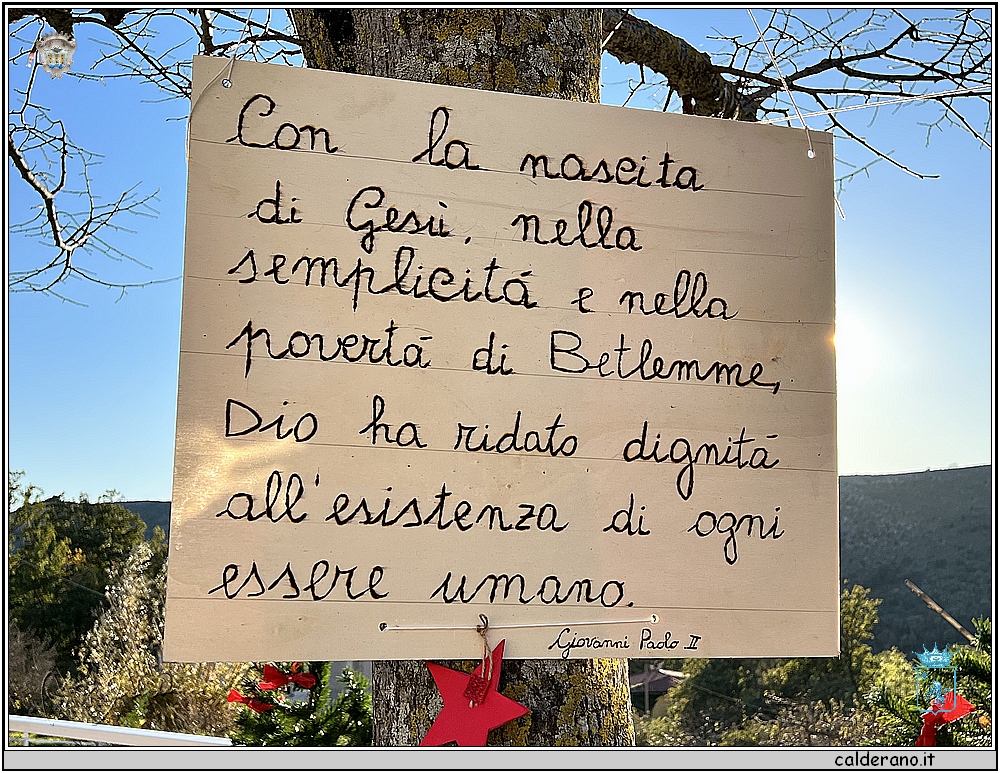 Con la nascita
di Gesù, nella
semplicitá e nella
povertá di Betlemme,
Dio ha ridato dignitá
all'esistenza di ogni
essere umano.
Giovanni Paolo II
calderano.it